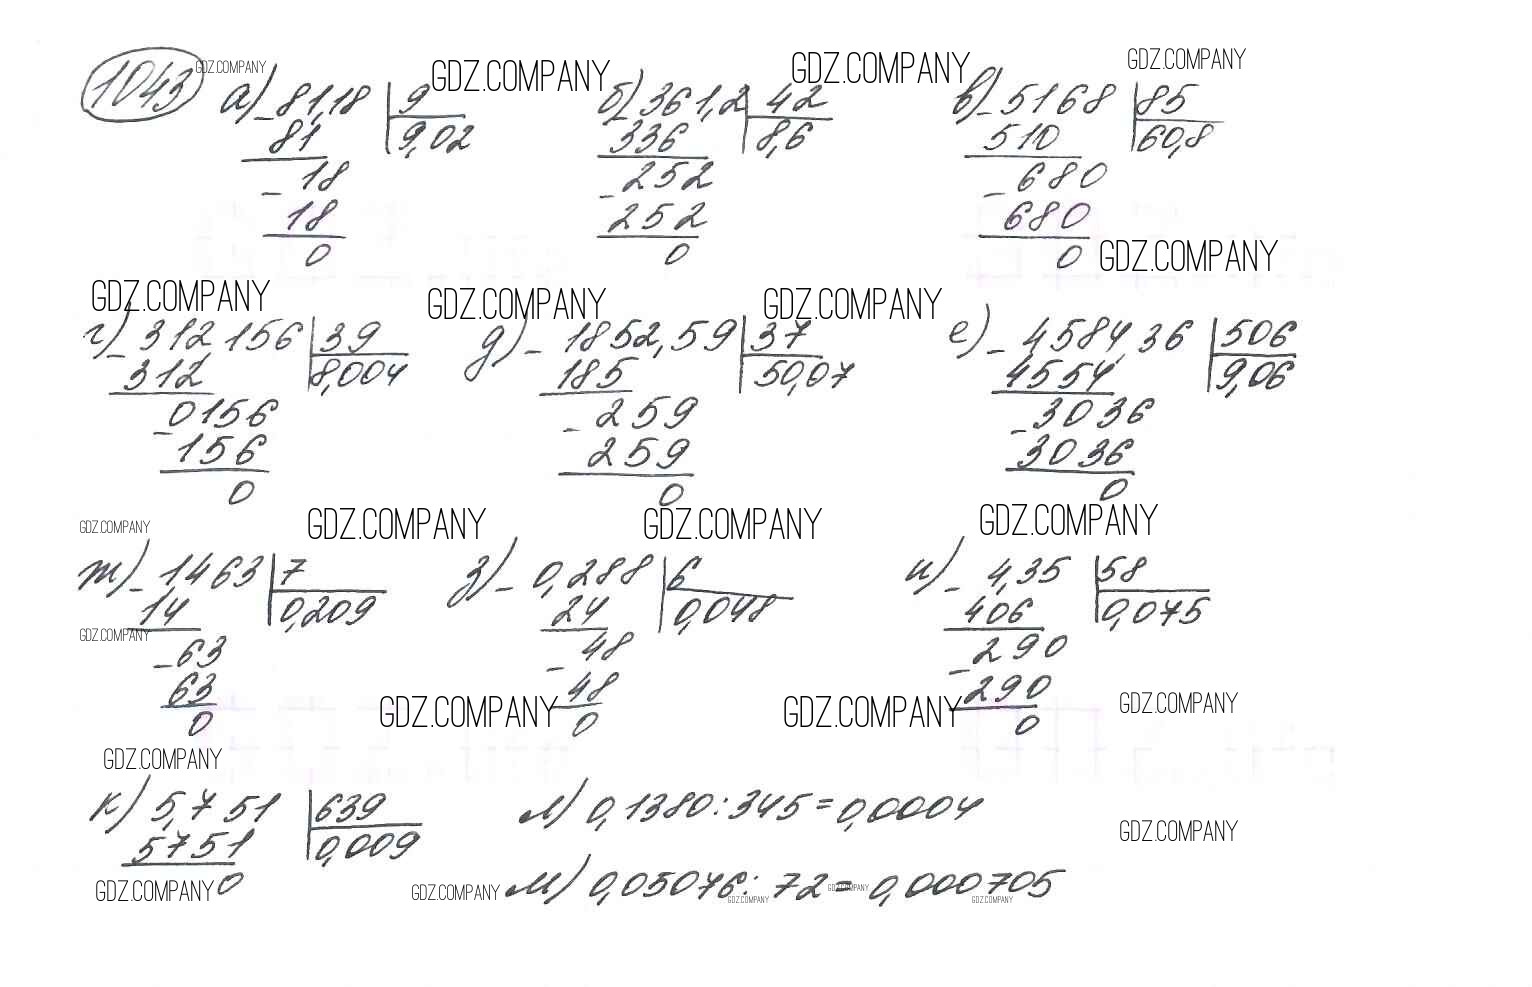 1043 GDZ.COMPANY GDZ.COMPANY GDZ.COMPANY GDZ.COMPANY
а) - 81,18 | 9 б) - 361,2 | 42 в) - 5168 | 85
81 9,02 336 8,6 510 60,8
- 18 - 252 - 680
18 252 680
0 0 0 GDZ.COMPANY
GDZ.COMPANY GDZ.COMPANY GDZ.COMPANY
г) - 312 156 | 39 д) - 1852,59 | 37 е) - 4584,36 | 506
312 8,004 185 50,07 4554 9,06
- 0156 - 259 - 3036
156 259 3036
0 0 0
GDZ.COMPANY GDZ.COMPANY GDZ.COMPANY GDZ.COMPANY
ж) - 1463 | 7 з) - 0,288 | 6 и) - 4,35 | 58
14 0,209 24 0,048 406 0,075
GDZ.COMPANY
- 63 - 48 - 290
63 48 290
0 0 0
GDZ.COMPANY GDZ.COMPANY GDZ.COMPANY
GDZ.COMPANY
к) 5,751 | 639 л) 0,1380 : 345 = 0,0004
5751 0,009 GDZ.COMPANY
0 м) 0,05076 : 72 = 0,000705
GDZ.COMPANY GDZ.COMPANY GDZ.COMPANY GDZ.COMPANY GDZ.COMPANY